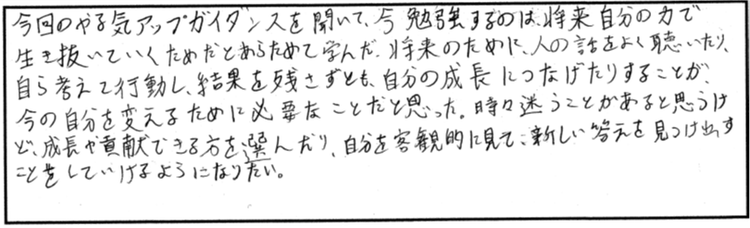 今回のやる気アップガイダンスを聞いて、今勉強するのは、将来自分の力で
生き抜いていくためだとあらためて学んだ。将来のために、人の話をよく聴いたり、
自ら考えて行動し、結果を残さずとも、自分の成長につなげたりすることが、
今の自分を変えるために必要なことだと思った。時々迷うことがあると思うけ
ど、成長や貢献できる方を選んだり、自分を客観的に見て、新しい答えを見つけ出す
ことをしていけるようになりたい。